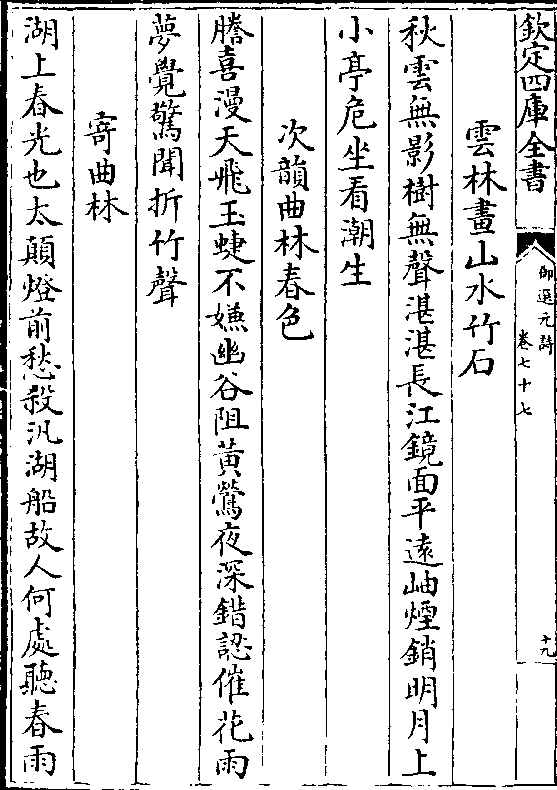 欽定四庫全書
御選元詩
卷七十七
十九
雲林畫山水竹石
秋雲無影樹無聲湛湛長江鏡面平遠岫煙銷明月上
小亭危坐看潮生
次韻曲林春色
謄喜漫天飛玉蜨不嫌幽谷阻黃鶯夜深錯認催花雨
夢覺驚聞折竹聲
寄曲林
湖上春光也太顛燈前愁殺汎湖船故人何處聽春雨